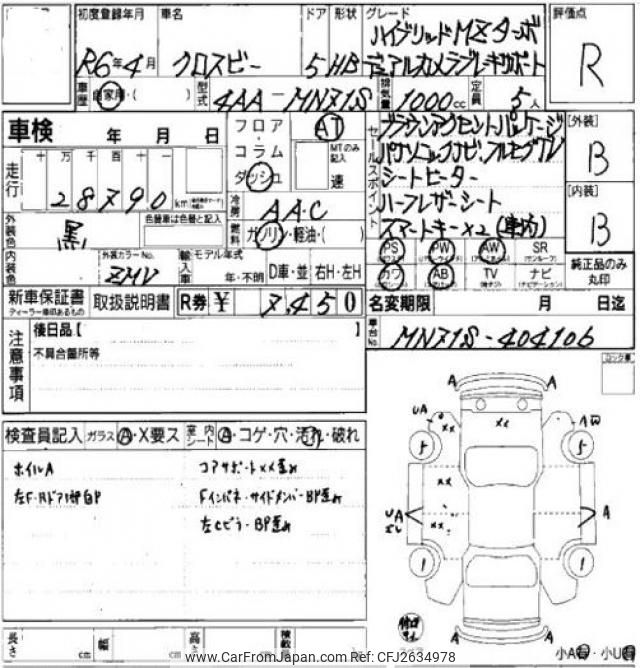 初度登録年月 車名 ドア 形状 グレード 評価点
R6年4月 クロスビー 5HB ハイブリッドMZターボ
デュアルカメラブレーキサポート
R
車歴 自家用・( ) 型式 4AA-MN71S 排気量 1000cc 定員 5人
車検 年 月 日
フロア・コラム ダッシュ AT MTのみ記入 速
セールスポイント
ブラウンアクセントパッケージ
パナソニックナビ、フルセグTV
シートヒーター
ハーフレザーシート
スマートキー×2 (車内)
[外装] B
[内装] B
走行 十 万 千 百 十 一
28790 km
冷房 AAC
燃料 ガソリン・軽油・( )
外装色 黒 色替車は色替と記入
内装色 外装カラーNo. ZMV
輸入車 モデル年式 年・不明 D車・並 右H・左H
PS PW AW SR
カワ AB TV ナビ
純正品のみ丸印
新車保証書 ディーラー車印あるもの 取扱説明書 R券 ¥ 7,450
名変期限 月 日
車台No. MN71S-404106
注意事項
後日品【
不具合箇所等
ロック車
検査員記入 ガラス A・X要ス 室内シート A・コゲ・穴・汚れ・破れ
ホイルA
コアサポートXX歪み
Fインパネ・サイドメンバーBP歪み
左Cピラ-BP歪み
A A
UA ×× ×× AW
5 5
××
UA ×× A
1 1
A A
長さ cm 幅 cm 高さ cm 積載
小A・小U
www.CarFromJapan.com - CFJ2634978